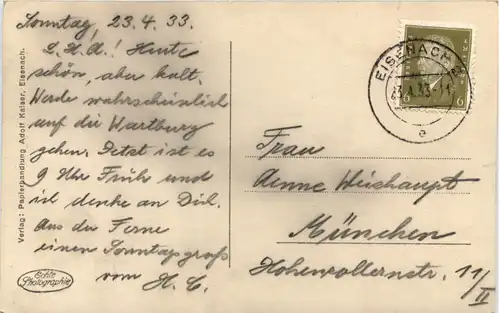 Sonntag, 23.4.33.
L. A. A.! Heute
schön, aber kalt.
Werde wahrscheinlich
auf die Wartburg
gehen. Jetzt ist es
9 Uhr Früh und
ich denke an Dich.
Aus der Ferne
einen Sonntagsgruß
vom H. C.
Verlag: Papierhandlung Adolf Kaiser, Eisenach.
Echte
Photographie
EISENACH
e
6 6
Frau
Aenne Weishaupt
München
Hohenzollernstr. 11/II